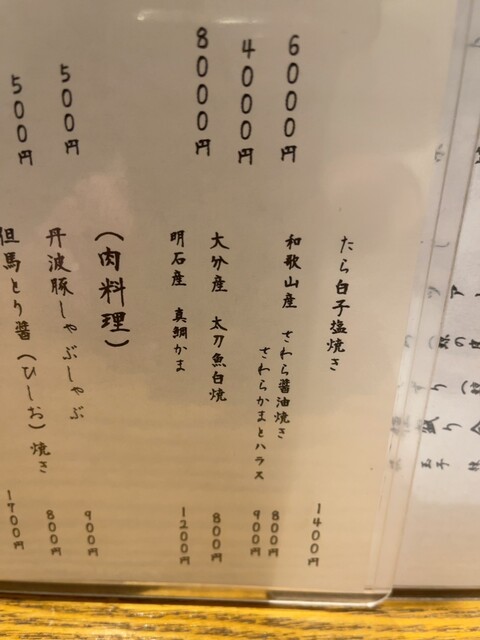 6000円
4000円
8000円
500円
500円
たら白子塩焼き 1400円
和歌山産 さわら醤油焼き 800円
さわらかまとハラス 900円
大分産 太刀魚白焼 800円
明石産 真鯛かま 1200円
(肉料理)
900円
丹波豚しゃぶしゃぶ 800円
但馬とり醤(ひしお)焼き 1700円